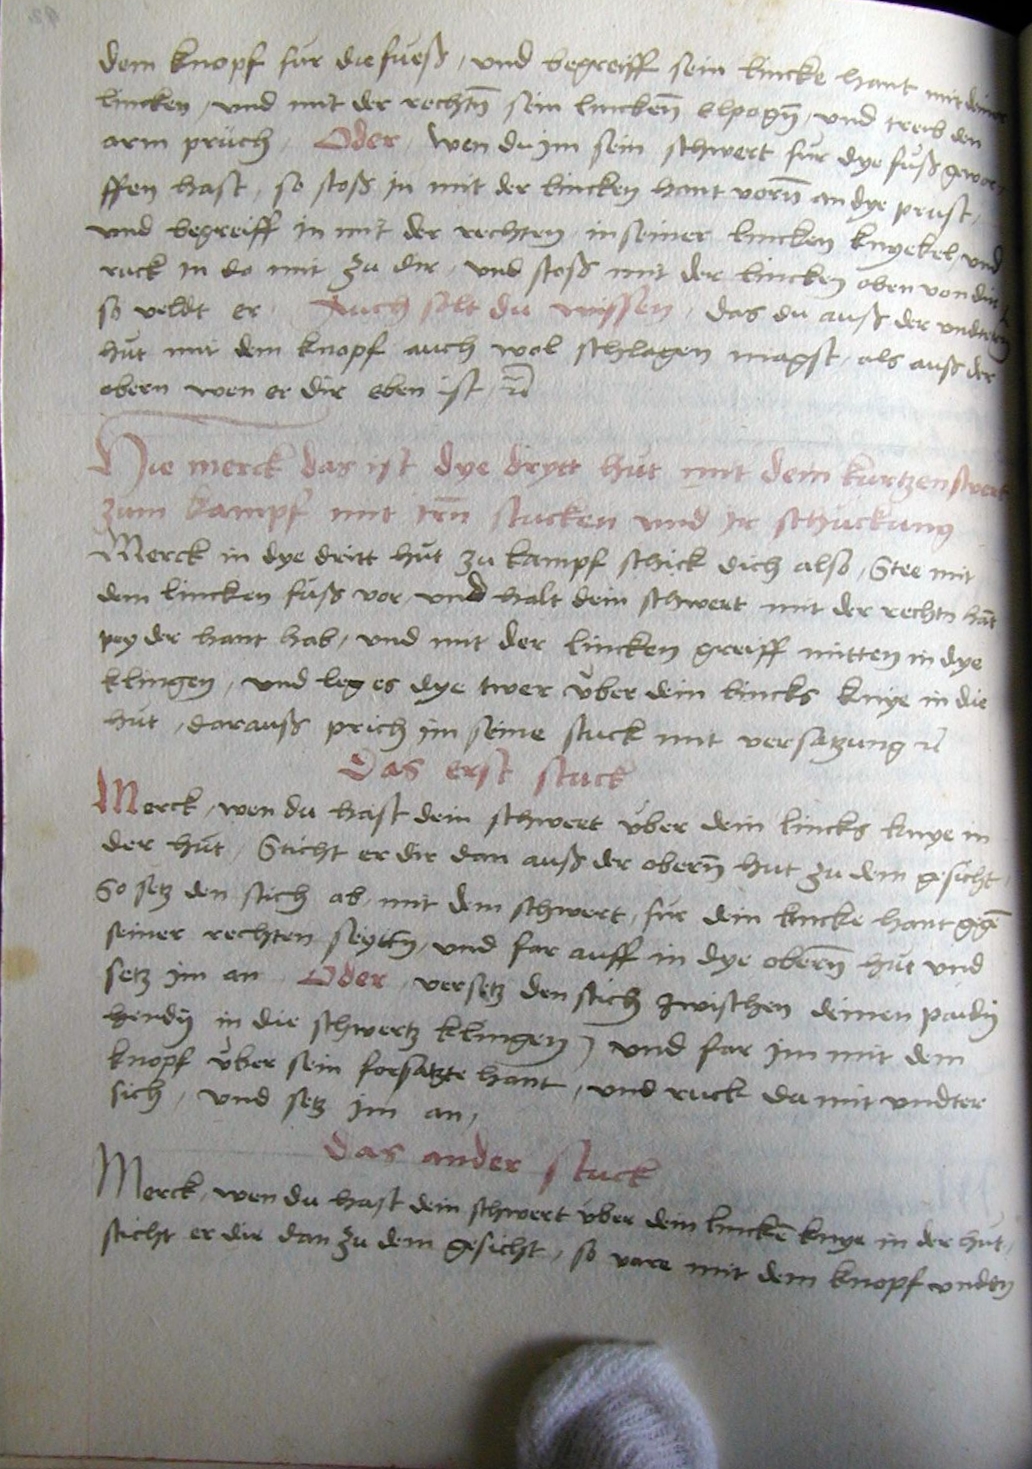 dem knopf fur die fuess / und begreiff sein lincke hant mit deiner
lincken / und mit der rechtn̄ sein linckenn̄ elpogn̄ / und treib den
arm prüch / Oder / wen du im sein schwert für dye fuß gewor
ffen hast / so stoß in mit der lincken hant vorn̄ an dye prust /
und begreiff in mit der rechten in seiner lincken knyekel / und
ruck in do mit zu dir / und stoß mit der lincken oben von dir
so veldt er / Auch solt du wyssen / das du auß der undtern
hüt mit dem knopf auch wol schlagen magst / als auß der
obern wen er dir eben ist /
Hie merck das ist dye drytt hüt mit dem kurtzen swert
zum kampf mit irn̄ stucken und ir schickung
Merck in dye dritt hüt zu kampf schick dich also / Stee mit
dem lincken füß vor / und halt dein schwert mit der rechtn hāt
pey der hant hab / und mit der lincken greiff mitten in dye
klingen / und leg es dye twer über dein lincks knye in die
hüt / darauß prich im seine stuck mit versatzung
Das erst stuck
Merck / wen du hast dein schwert über dein lincks knye in
der hüt / Sticht er dir dan auß der obern̄ hut zu dem gesicht /
So setz den stich ab / mit dem schwert / für dein lincke hant gegē
seiner rechten seyttn̄ / und far auff in dye obern̄ hüt und
setz im an Oder / versetz den stich zwischen deinen paidn̄
hendn̄ in die schwertz klingen / und far im mit dem
knopf über sein forsatzte hant / und ruck da mit undter
sich / und setz im an /
Das ander stuck
Merck / wen du hast dein schwert über dein linckē knye in der hüt /
sticht er dir dan zu dem gesicht / so vare mit dem knopf undten